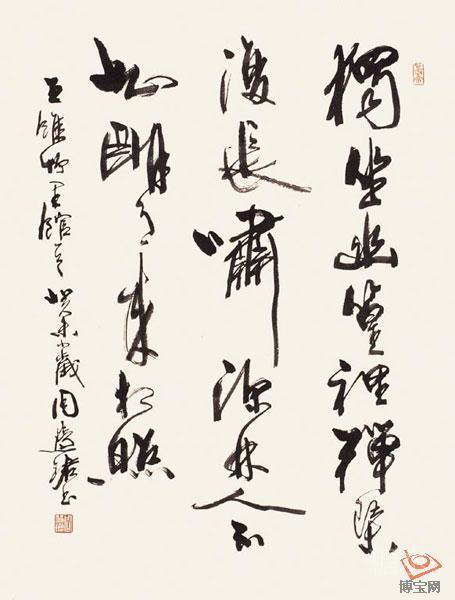 獨坐幽篁裡彈琴
復長嘯深林人不
知明月來相照
王維竹里館 癸未歲周 書
博宝网